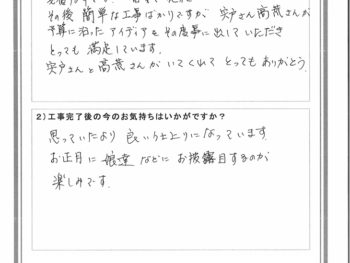 その後 簡単な工事ばかりですが 宍戸さん 高荒さんが
予算に沿ったアイディアを その度事に出していただき
とっても 満足しています。
宍戸さんと高荒さんがいてくれて とってもありがとう。
2）工事完了後の今のお気持ちはいかがですか？
思っていたより 良い仕上りになっています
お正月に 娘達などに お披露目するのが
楽しみです。